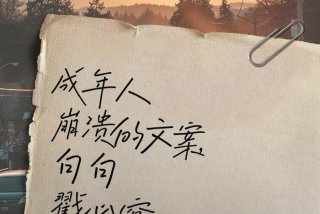 成年人
崩溃的文案
句句
戳